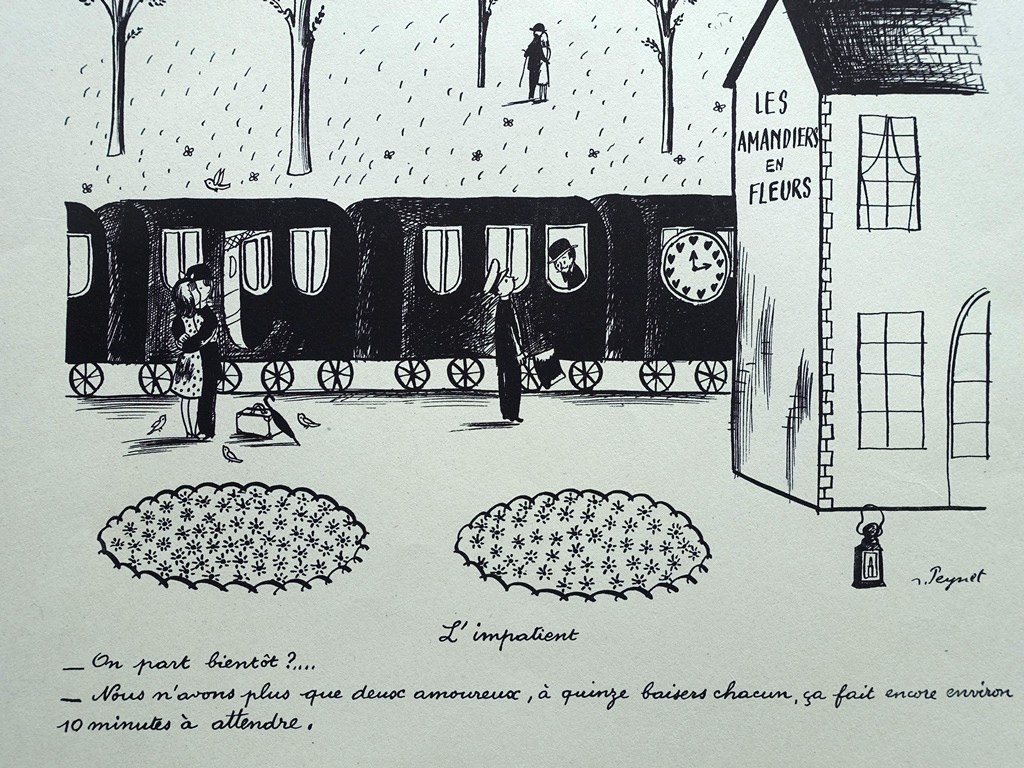 LES
AMANDIERS
EN
FLEURS
r. Peynet
L'impatient
— On part bientôt ?....
— Nous n'avons plus que deux amoureux, à quinze baisers chacun, ça fait encore environ
10 minutes à attendre.